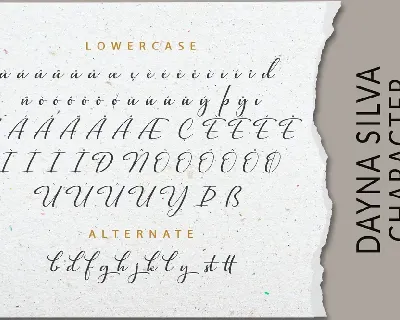 LOWERCASE
á â ã ä å æ ç è é ê ë ì í î ï ð
ñ ò ó ô õ ö ø ù ú û ü ý þ ÿ ı
À Á Â Ã Ä Å Æ Ç È É Ê Ë
Ì Í Î Ï Ð Ñ Ò Ó Ô Õ Ö Ø
Ù Ú Û Ü Ý Þ ß
ALTERNATE
b d f g h j k l y st tt
DAYNA SILVA
CHARACTER